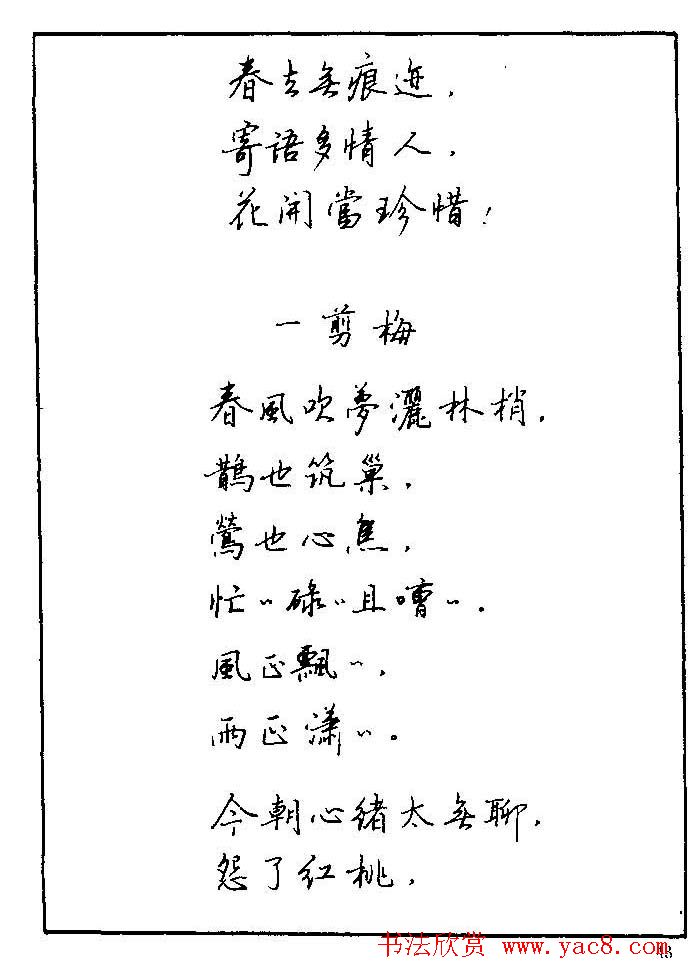 春去無痕迹，
寄语多情人，
花開當珍惜！
一剪梅
春風吹夢灑林梢，
鵲也筑巢，
鶯也心焦，
忙〻碌〻且嘈〻。
風正飄〻，
雨正潇〻。
今朝心緒太無聊，
怨了红桃，
书法欣赏 www.yac8.com